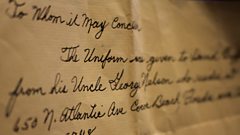 To Whom it May Conce
The Uniform is given to David
from his Uncle George Nelson who resides at
650 N. Atlantic Ave Coco Beach Florida